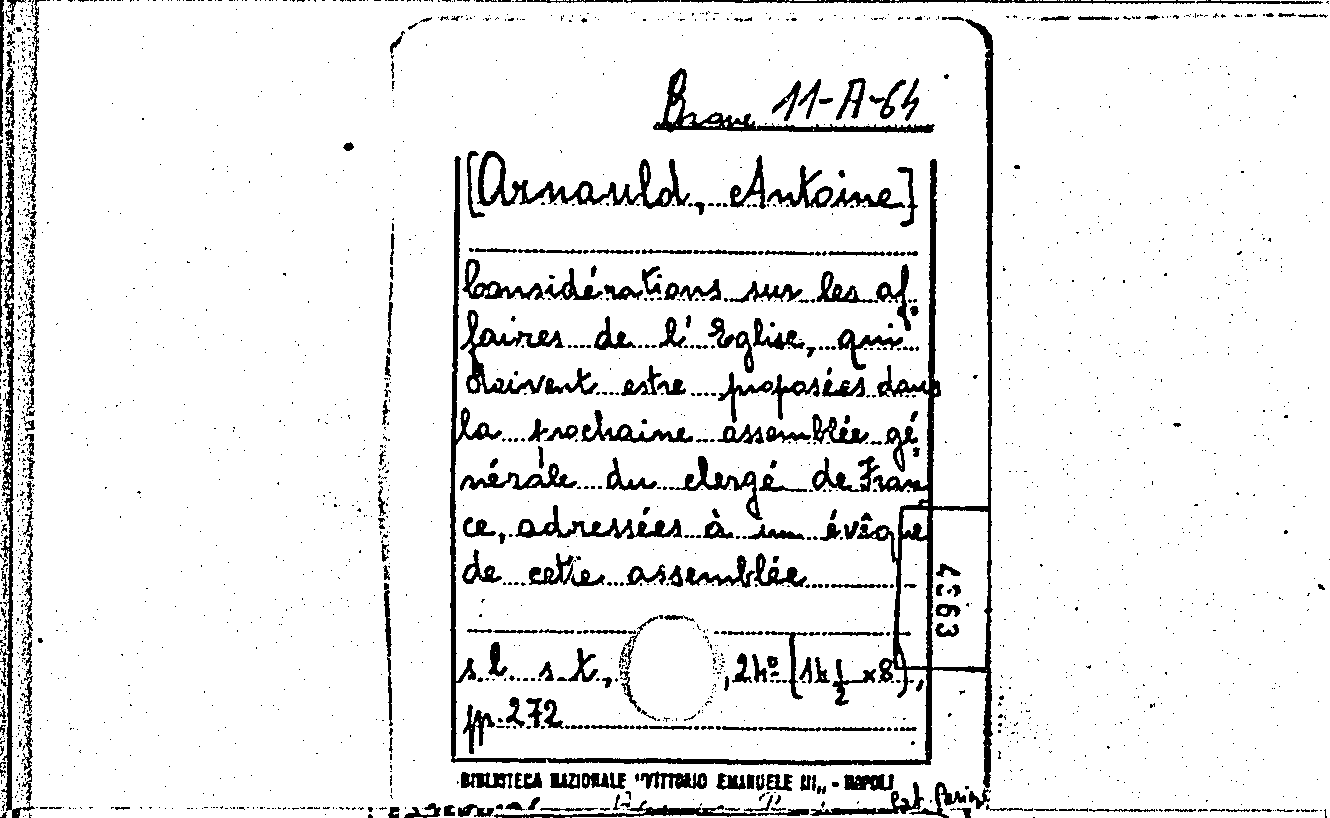 Brane 11-A-64
[Arnauld, Antoine]
Considérations sur les af-
faires de l'Eglise, qui
doivent estre proposées dans
la prochaine assemblée gé-
nérale du clergé de Fran-
ce, adressées à un évêque
de cette assemblée
4363
s.l. s.t., , 24º (14 1/2 x8),
pp. 272
BIBLIOTECA NAZIONALE "VITTORIO EMANUELE III„ - NAPOLI